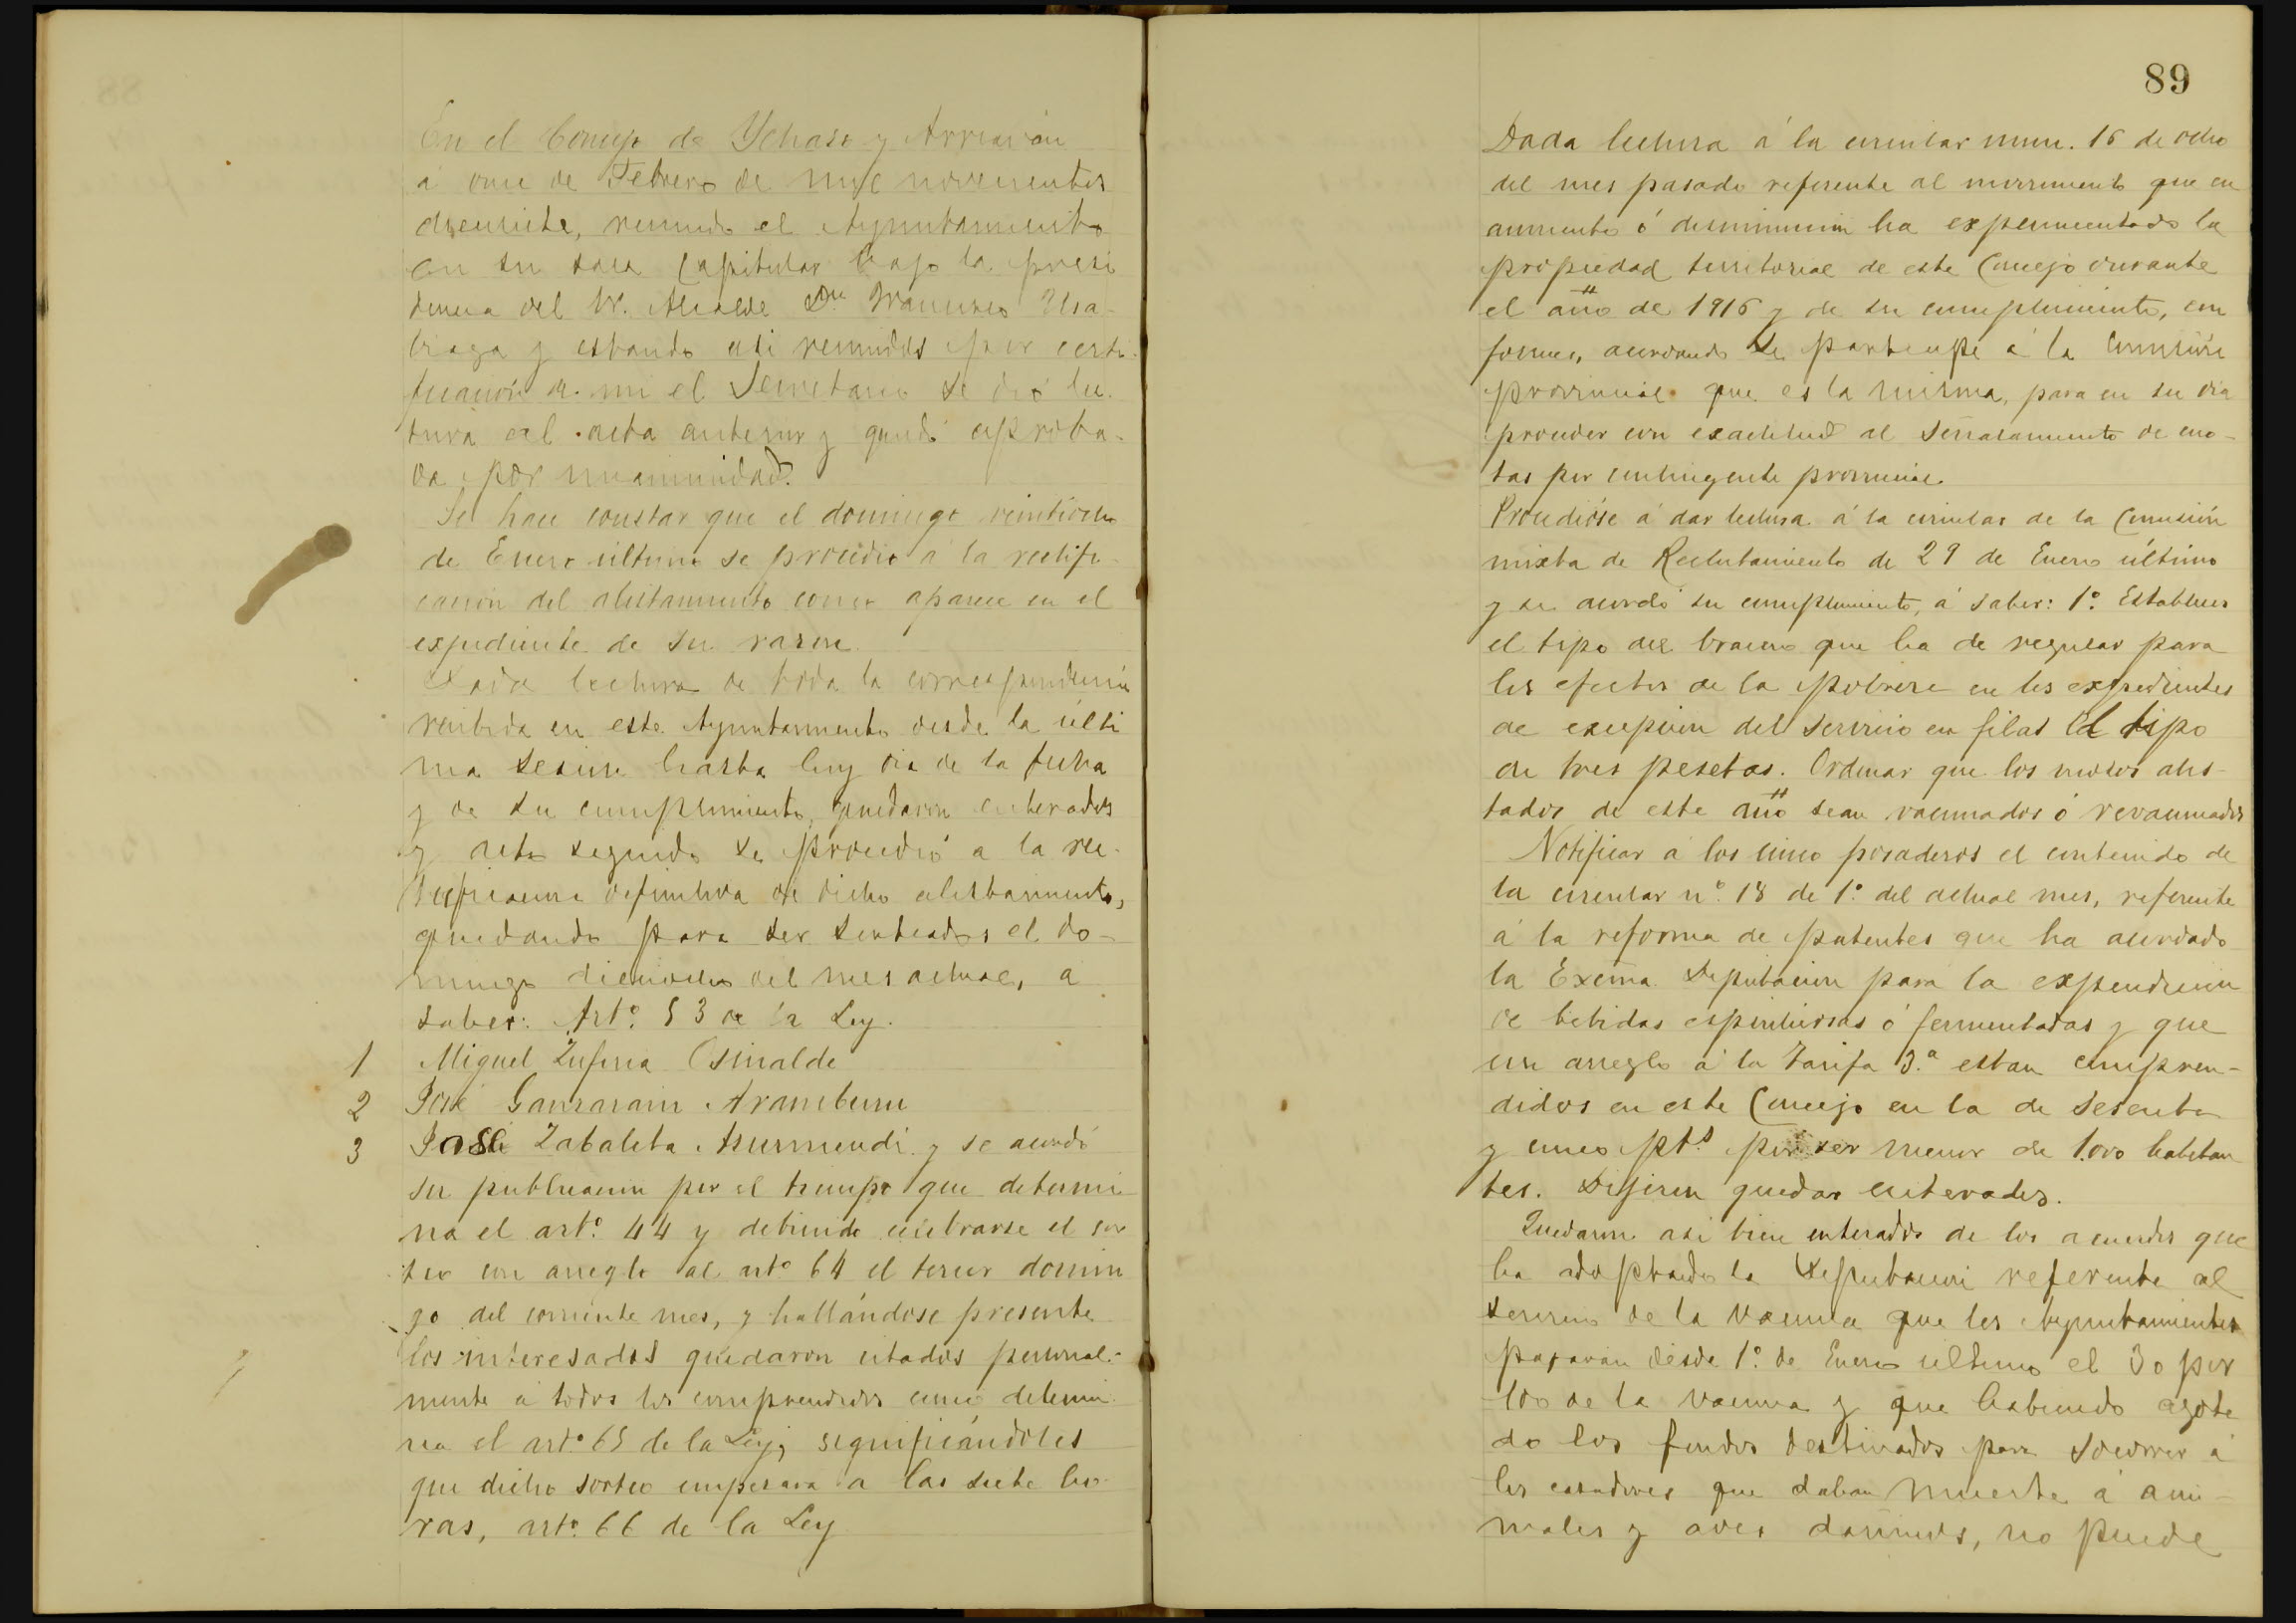 En el Concejo de Ychaso y Arriarán
á once de Febrero de mil novecientos
diecisiete, reunido el Ayuntamiento
en su sala Capitular bajo la presi
dencia del Sr. Alcalde Dn. Francisco Usa-
biaga y estando asi reunidos por certi-
ficación de mi el Secretario se dió lec-
tura al acta anterior y quedó aproba-
da por unanimidad.
Se hace constar que el domingo veintiocho
de Enero último se procedió á la rectifi-
cación del alistamiento como aparece en el
expediente de su razon.
Dada lectura de toda la correspondencia
recibida en este Ayuntamiento desde la últi
ma sesion hasta hoy dia de la fecha
y de su cumplimiento, quedaron enterados
y acto seguido se procedió a la rec-
tificacion definitiva de dicho alistamiento,
quedando para ser sorteados el do-
mingo dieciocho del mes actual, a
saber: Artº. 53 de la Ley.
1 Miguel Zufiria Osinalde
2 José Ganzarain Aramburu
3 José Zabaleta Asurmendi y se acordó
su publicacion por el tiempo que determi
na el artº. 44 y debiendo celebrarse el sor
teo con arreglo al artº 64 el tercer domin
go del corriente mes, y hallándose presente
los interesados quedaron citados personal-
mente á todos los comprendidos como determi-
na el artº 65 de la Ley, significándoles
que dicho sorteo empezara a las siete ho-
ras, artº. 66 de la Ley
89
Dada lectura á la circular num. 16 de ocho
del mes pasado referente al movimiento que en
aumento ó disminucion ha experimentado la
propiedad territorial de este Concejo durante
el año de 1916 y de su cumplimiento, con
formes, acordando se participe á la Comisión
provincial que es la misma, para en su dia
proceder con exactitud al señalamiento de cuo-
tas por contingente provincial.
Procedióse á dar lectura á la circular de la Comisión
mixta de Reclutamiento de 29 de Enero último
y se acordó su cumplimiento, á saber: 1º. Establecer
el tipo del bracero que ha de regular para
los efectos de la pobreza en los expedientes
de excepcion del servicio en filas el tipo
de tres pesetas. Ordenar que los mozos alis-
tados de este año sean vacunados ó revacunados
Notificar á los cinco posaderos el contenido de
la circular nº. 18 de 1º. del actual mes, referente
á la reforma de patentes que ha acordado
la Excma. Diputacion para la expendicion
de bebidas espirituosas ó fermentadas y que
con arreglo á la Tarifa 3.ª estan compren-
didos en este Concejo en la de sesenta
y cinco pts. por ser menor de 1.000 habitan
tes. Dijeron quedar enterados.
Quedaron asi bien enterados de los acuerdos que
ha adoptado la Diputacion referente al
servicio de la vacuna que los Ayuntamientos
pagaran desde 1º. de Enero último el 30 por
100 de la vacuna y que habiendo agota
do los fondos destinados para socorrer á
los cazadores que daban muerte á ani-
males y aves dañinos, no puede